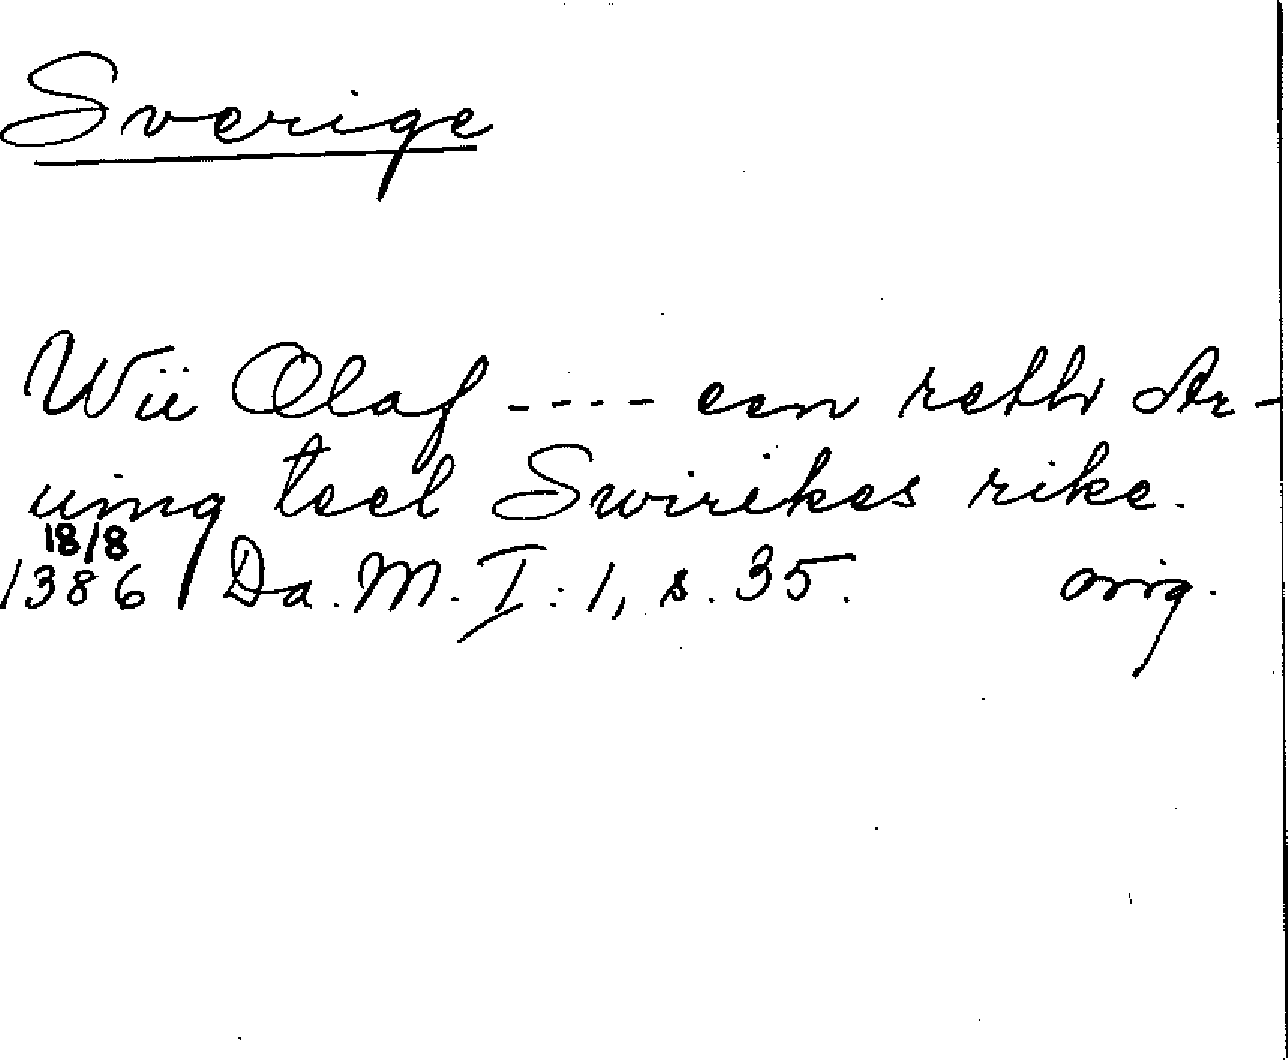 Sverige
Wii Olaf ---- een retthr Ar-
uing teel Swirikes rike.
18/8
1386 Da. M. I: 1, s. 35. orig.